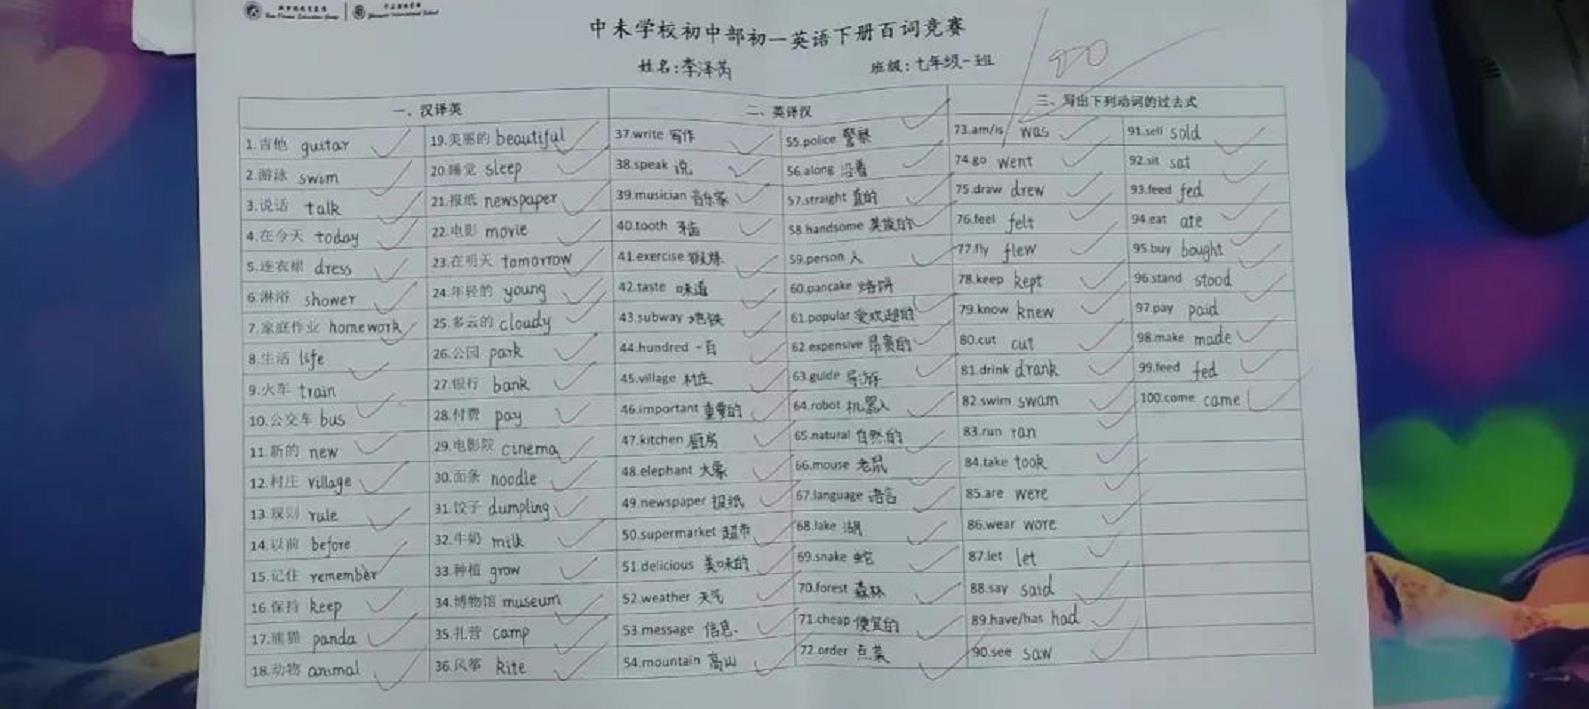 中未学校初中部初一英语下册百词竞赛
姓名:李泽芮 班级:七年级一班
100
一、汉译英 二、英译汉 三、写出下列动词的过去式
1.吉他 guitar 19.美丽的 beautiful 37.write 写作 55.police 警察 73.am/is was 91.sell sold
2.游泳 swim 20.睡觉 sleep 38.speak 说 56.along 沿着 74.go went 92.sit sat
3.说话 talk 21.报纸 newspaper 39.musician 音乐家 57.straight 直的 75.draw drew 93.feed fed
4.在今天 today 22.电影 movie 40.tooth 牙齿 58.handsome 英俊的 76.feel felt 94.eat ate
5.连衣裙 dress 23.在明天 tomorrow 41.exercise 锻炼 59.person 人 77.fly flew 95.buy bought
6.淋浴 shower 24.年轻的 young 42.taste 味道 60.pancake 烙饼 78.keep kept 96.stand stood
7.家庭作业 homework 25.多云的 cloudy 43.subway 地铁 61.popular 受欢迎的 79.know knew 97.pay paid
8.生活 life 26.公园 park 44.hundred 一百 62.expensive 昂贵的 80.cut cut 98.make made
9.火车 train 27.银行 bank 45.village 村庄 63.guide 导游 81.drink drank 99.feed fed
10.公交车 bus 28.付费 pay 46.important 重要的 64.robot 机器人 82.swim swam 100.come came
11.新的 new 29.电影院 cinema 47.kitchen 厨房 65.natural 自然的 83.run ran
12.村庄 village 30.面条 noodle 48.elephant 大象 66.mouse 老鼠 84.take took
13.规则 rule 31.饺子 dumpling 49.newspaper 报纸 67.language 语言 85.are were
14.以前 before 32.牛奶 milk 50.supermarket 超市 68.lake 湖 86.wear wore
15.记住 remember 33.种植 grow 51.delicious 美味的 69.snake 蛇 87.let let
16.保持 keep 34.博物馆 museum 52.weather 天气 70.forest 森林 88.say said
17.熊猫 panda 35.扎营 camp 53.message 信息. 71.cheap 便宜的 89.have/has had
18.动物 animal 36.风筝 kite 54.mountain 高山 72.order 点菜 90.see saw